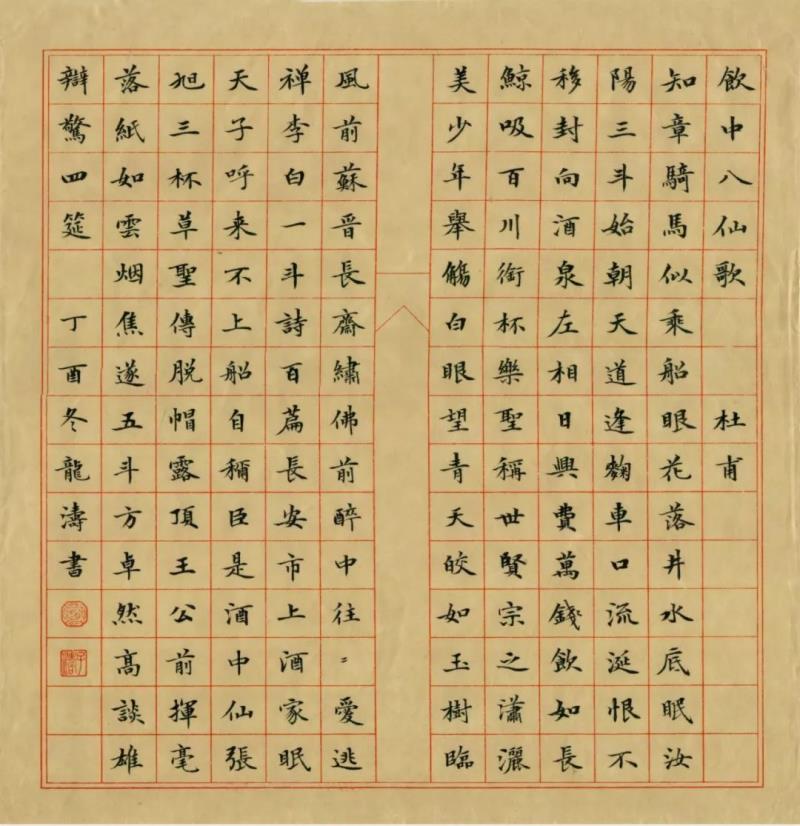 飲中八仙歌 杜甫
知章騎馬似乘船眼花落井水底眠汝
陽三斗始朝天道逢麴車口流涎恨不
移封向酒泉左相日興費萬錢飲如長
鯨吸百川銜杯樂聖稱世賢宗之瀟灑
美少年舉觴白眼望青天皎如玉樹臨
風前蘇晉長齋繡佛前醉中往〻愛逃
禅李白一斗詩百篇長安市上酒家眠
天子呼来不上船自稱臣是酒中仙張
旭三杯草聖傳脱帽露頂王公前揮毫
落紙如雲烟焦遂五斗方卓然高談雄
辯驚四筵 丁酉冬龍濤書